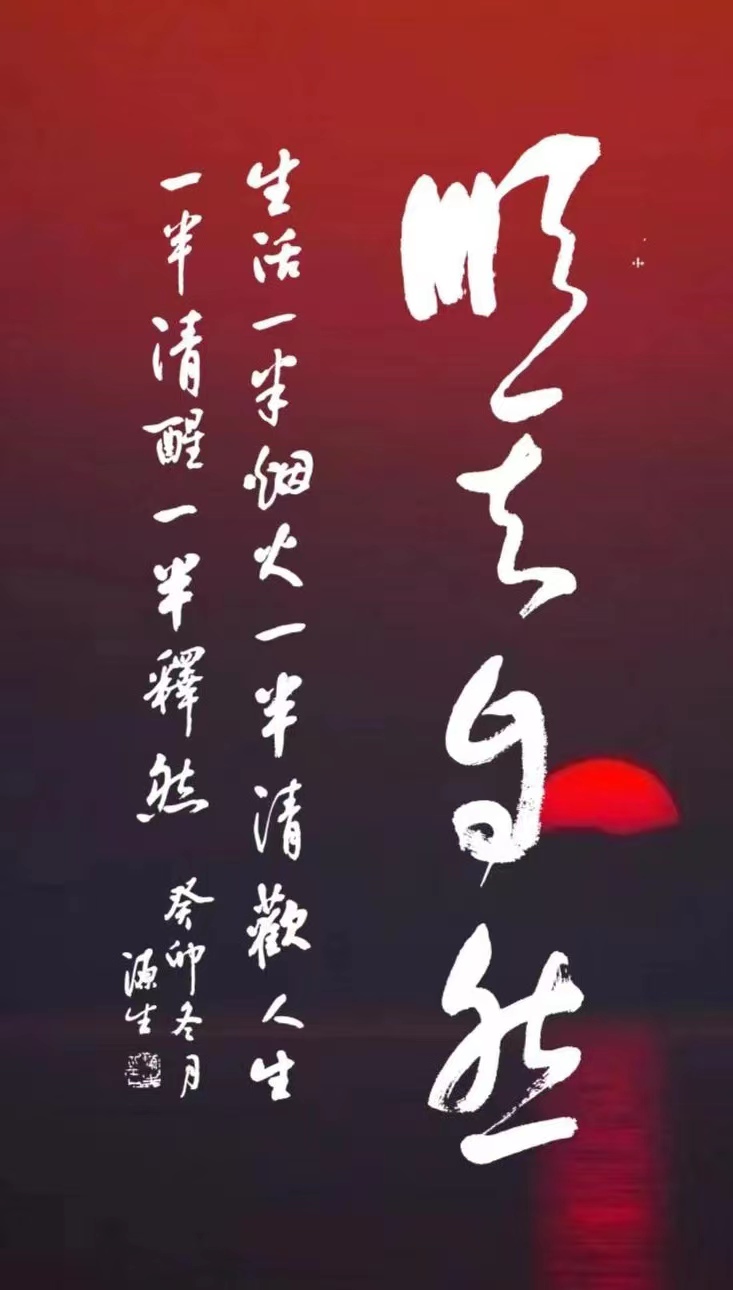 顺其自然
生活一半烟火一半清歡人生
一半清醒一半釋然
癸卯冬月
源生